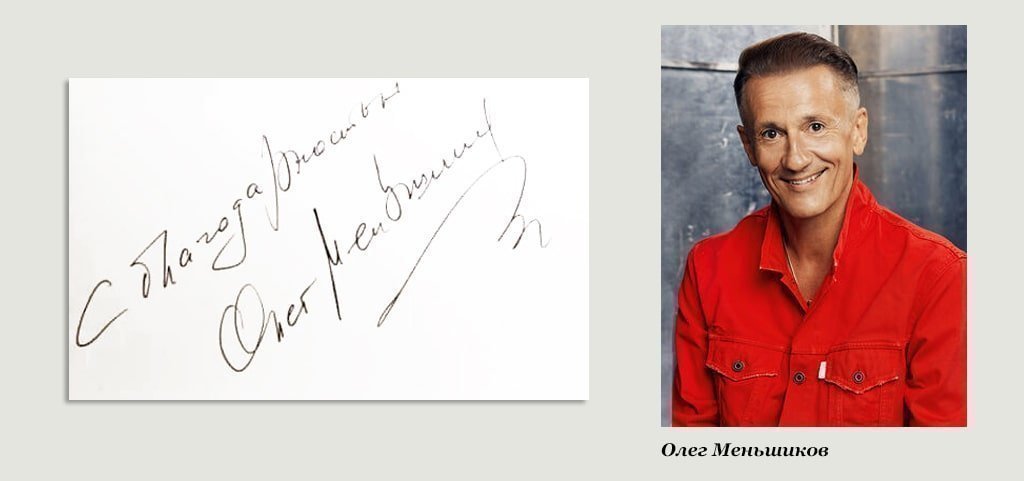 С благодарностью
Олег Меньшик
Олег Меньшиков